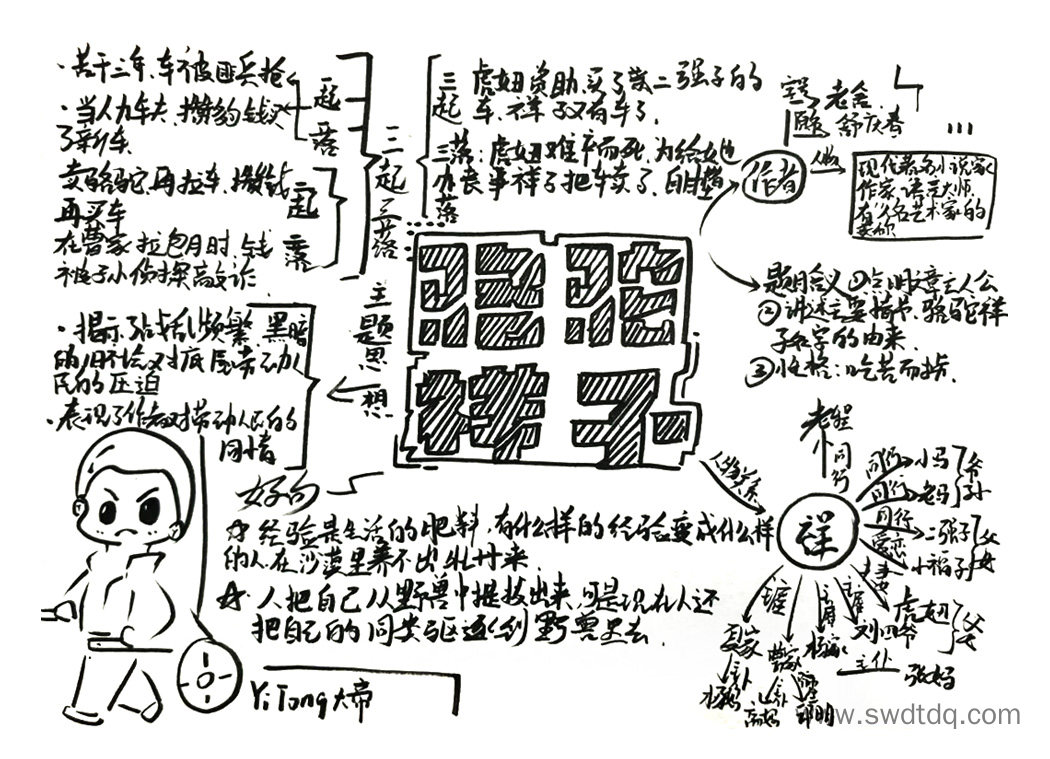 ·苦干三年,车被匪兵抢
·当人力车夫,攒够钱买
了新车.
起
落
卖骆驼,再拉车,攒钱
再买车
在曹家拉包月时,钱
被孙侦探敲诈.
起
落
三起三落
三起
虎妞资助,买了二强子的
车,祥子又有车了.
三落:虎妞难产而死,为给她
办丧事祥子把车卖了,
主题思想
·揭示了战乱频繁、黑暗
的旧社会对底层劳动人
民的压迫
·表现了作者对劳动人民的
同情
骆驼
祥子
作者
老舍
舒庆春
...
现代著名小说家
作家,语言大师,
有"人民艺术家"的
题目含义①点明文章主人公
②讲述主要情节,骆驼祥
子名字的由来.
③性格:吃苦而
好句
☆经验是生活的肥料,有什么样的经验变成什么样
的人,在沙漠里养不出牡丹来.
☆人把自己从野兽中提拔出来,可是现在人还
把自己的同类驱逐到野兽里去.
人物关系
祥
老程
同行
同行
小马
同行
老马
爷孙
同行
二强子
恋
小福子
父女
夫妻
虎妞
刘四爷
父女
主仆
张妈
夏家
曹家
杨家
主仆
杨妈
主仆
高妈
YiTong大帝
www.swdtdq.com